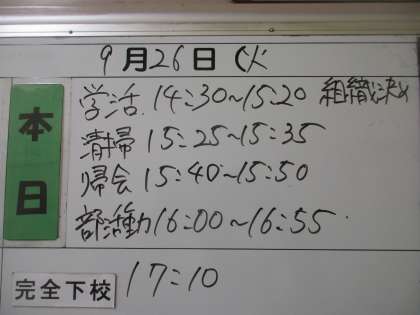 9月26日(火
本日
学活 14:30~15:20 組織決め
清掃 15:25~15:35
帰会 15:40~15:50
部活動 16:00~16:55
完全下校 17:10